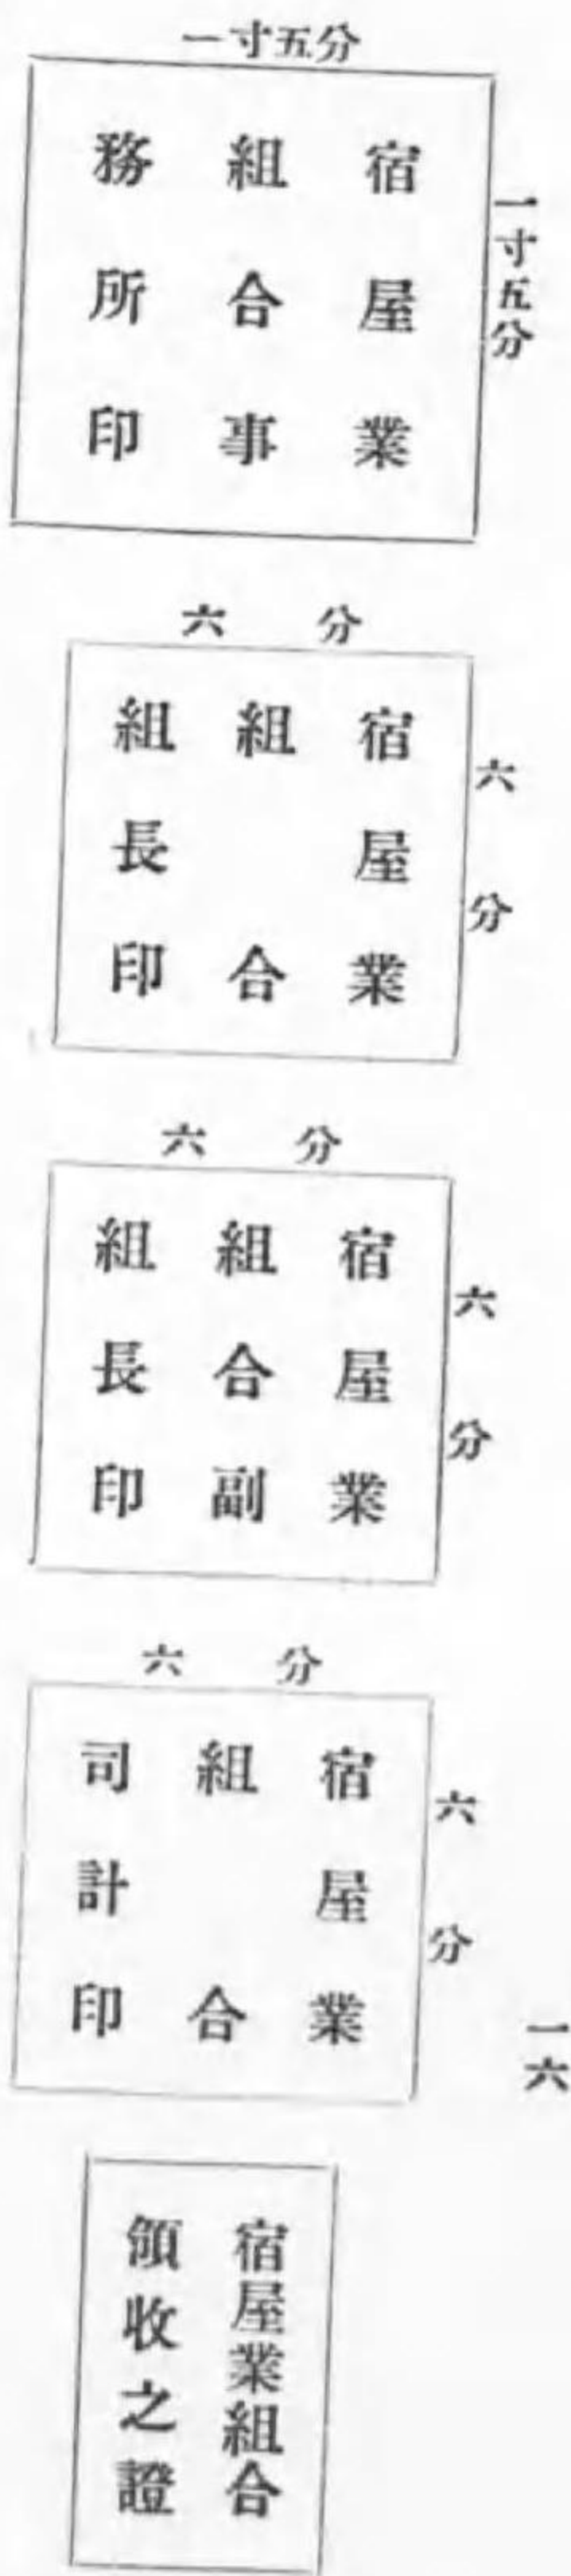 一寸五分
一寸五分
宿屋業
組合事
務所印
六分
六分
宿屋業
組合
組長印
六分
六分
宿屋業
組合副
組長印
六分
六分
宿屋業
組合
司計印
一六
宿屋業組合
領收之證